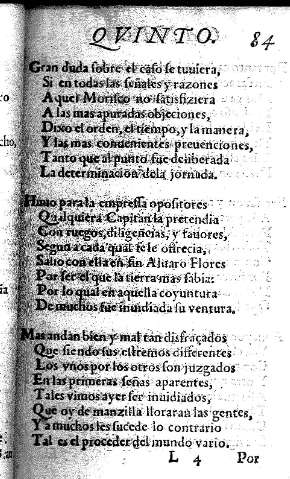 QVINTO. 84
Gran duda sobre el caso se tuuiera,
Si en todas las señales y razones
Aquel Morisco no satisfiziera
A las mas apuradas objeciones,
Dixo el orden, el tiempo, y la manera,
Y las mas conuenientes preuenciones,
Tanto que al punto fue deliberada
La determinacion dela jornada.
Huuo para la empressa opositores
Qualquiera Capitan la pretendia
Con ruegos, diligencias, y fauores,
Segun a cada qual se le ofrecia,
Salio con ella en fin Aluaro Flores
Por ser el que la tierra mas sabia:
Por lo qual en aquella coyuntura
De muchos fue inuidiada su ventura.
Mas andan bien y mal tan disfraçados
Que siendo sus estremos differentes
Los vnos por los otros son juzgados
En las primeras señas aparentes,
Tales vimos ayer ser inuidiados,
Que oy de manzilla lloraran las gentes,
Y a muchos les sucede lo contrario
Tal es el proceder del mundo vario.
L 4 Por